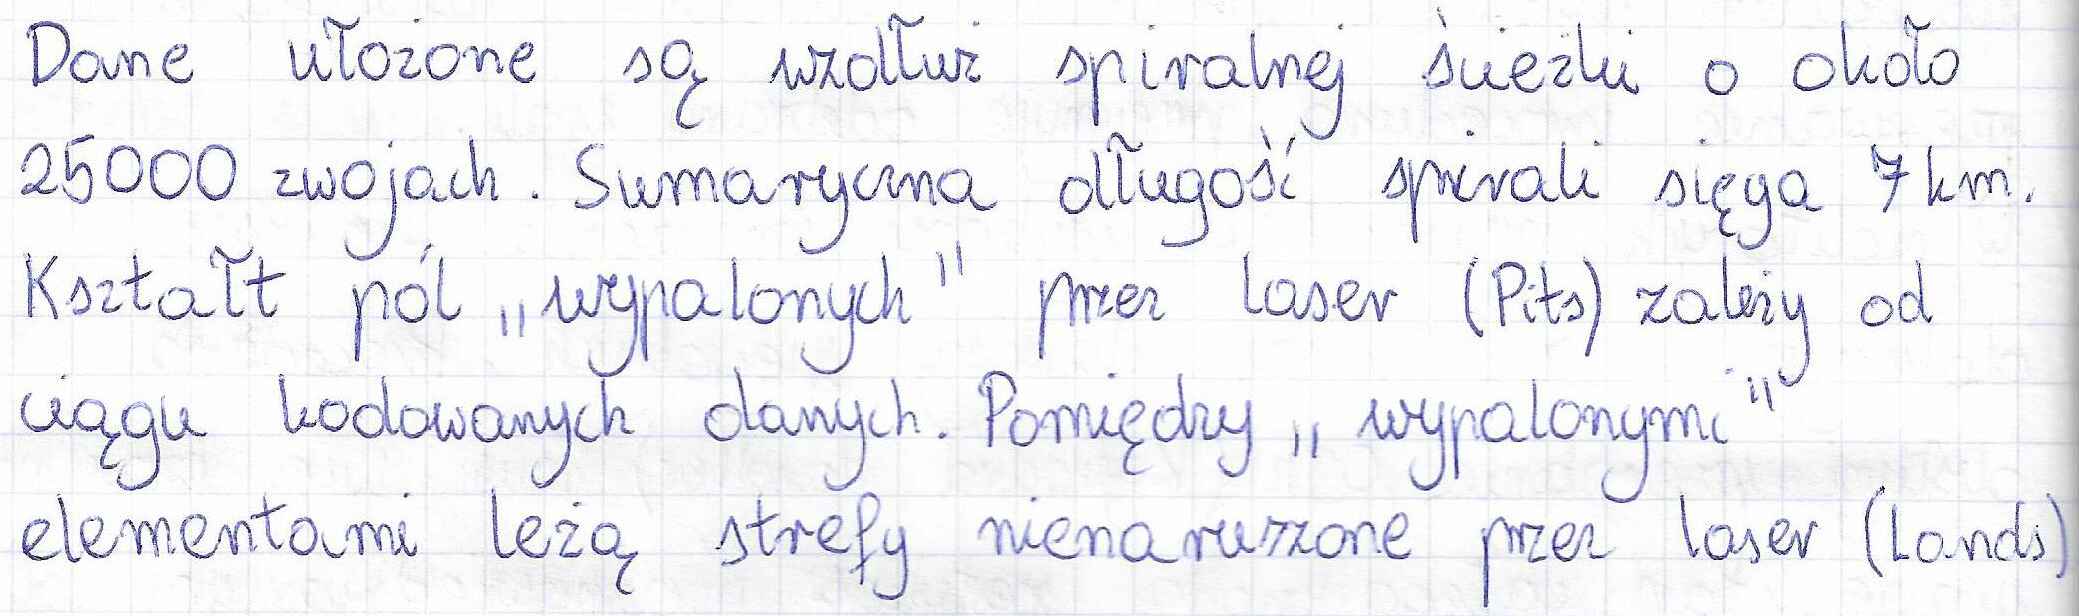 Dane ułożone są wzdłuż spiralnej ścieżki o około
25000 zwojach. Sumaryczna długość spirali sięga 7km.
Kształt pól „wypalonych" przez laser (Pits) zależy od
ciągu kodowanych danych. Pomiędzy „wypalonymi"
elementami leżą strefy nienaruszone przez laser (Lands)